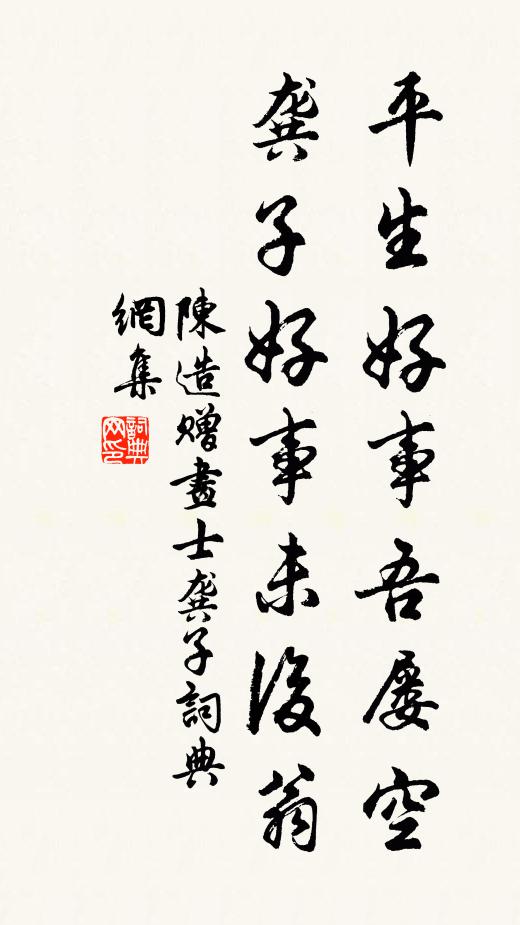 平生好事吾屢空
龔子好事未後翁
陳造贈畫士龔子詞典
網集
詞典
网印